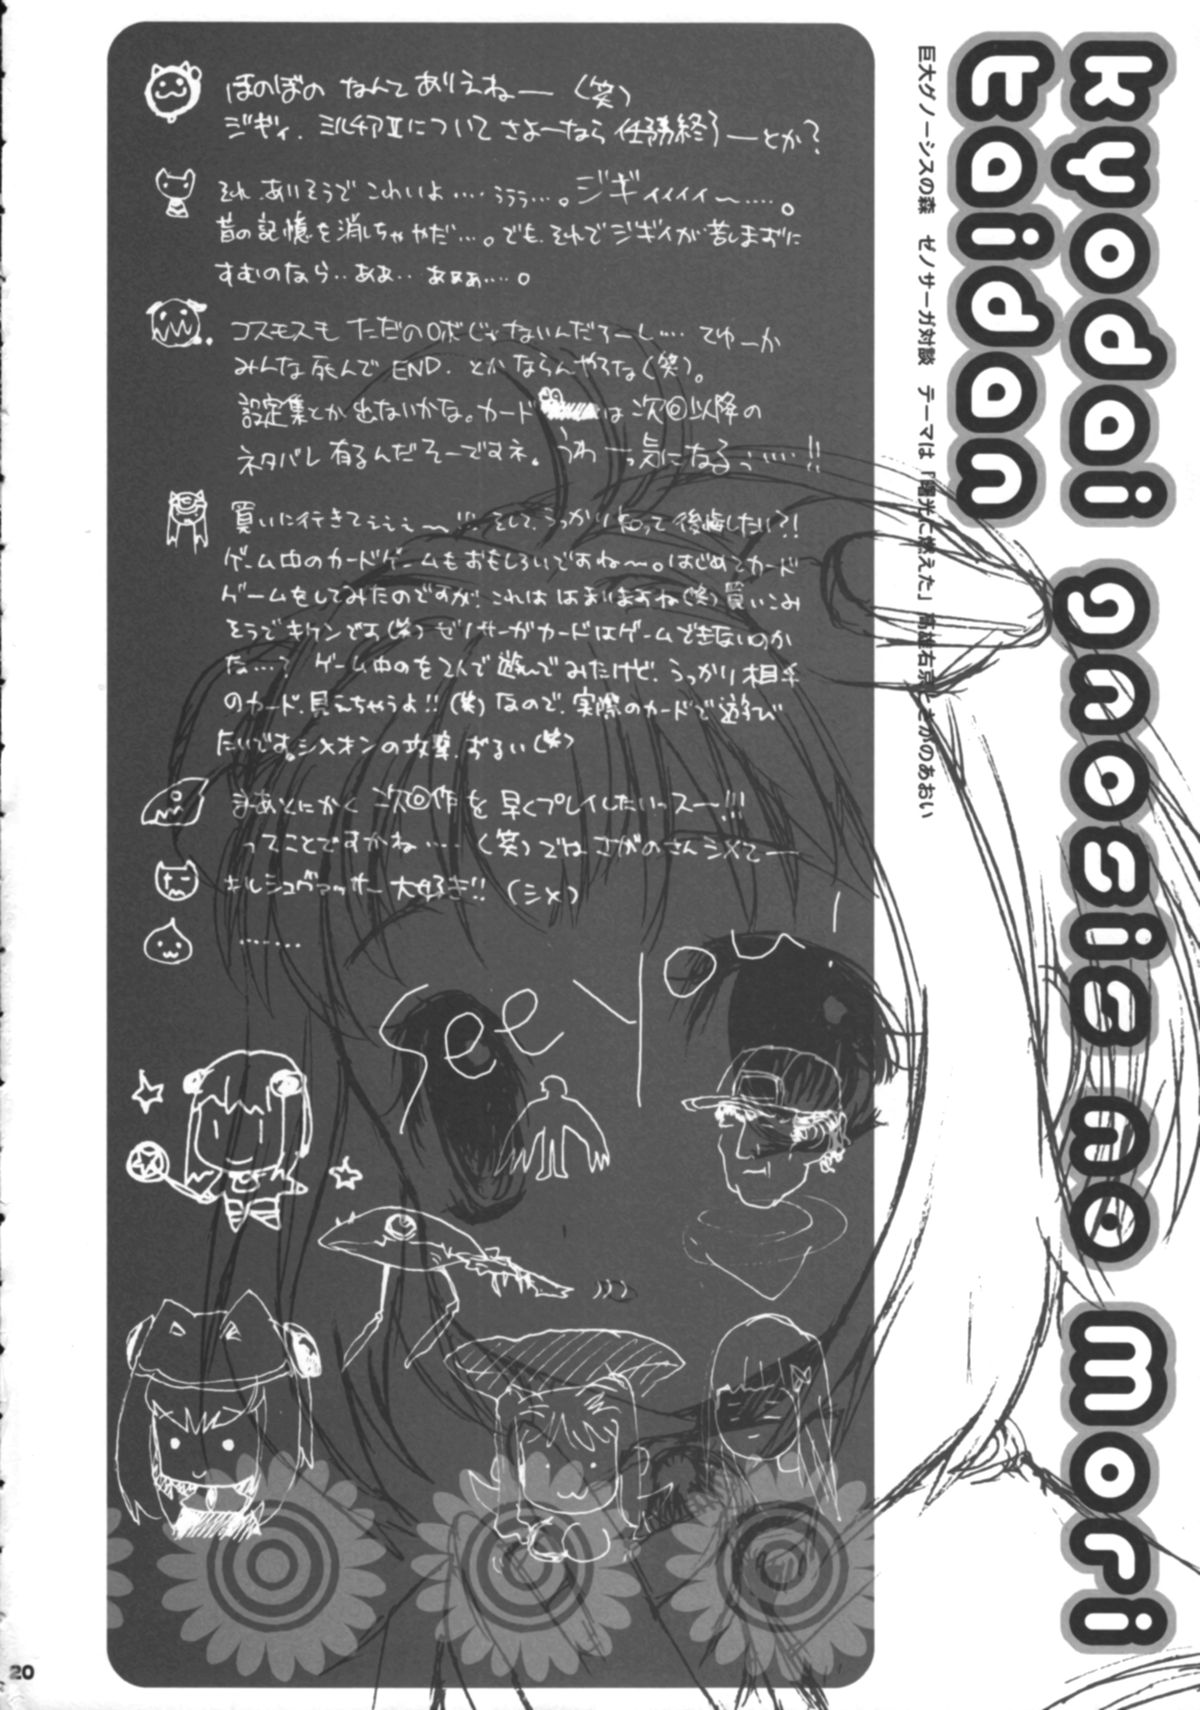 kyodai gnosis no mori
taidan
巨大グノーシスの森　ゼノサーガ対談　テーマは「曙光に燃えた」高雄右京ととがのあおい
ほのぼの なんて ありえねー (笑)
ジギィ、ミルチアⅡについて さよーなら 任務終了ーとか?
それ、ありそうで こわいよ‥‥ ううう…。ジギィィィィ〜‥‥。
昔の記憶を消しちゃやだ…。でも、それでジギィが苦しまずに
すむのなら‥ああ‥ あああ‥‥。
コスモスも ただのロボじゃないんだろーし‥‥ てゆーか
みんな死んで END. とかならんやろな(笑)。
設定集とか出ないかな。カード は 次回以降の
ネタバレ有るんだそーですネ。うわーっ気になるぅ‥‥!!
買いに行きてぇぇぇ〜!! そして、うっかり知って後悔したい?!
ゲーム中のカードゲームもおもしろいですね〜。はじめてカード
ゲームをしてみたのですが、これは はまりますね(笑) 買いこみ
そうでキケンです(笑) ゼノサーガカードはゲームできないのか
な…? ゲーム中のを2人で遊んでみたけど、うっかり相手
のカード、見えちゃうよ!! (笑) なので、実際のカードで遊び
たいです。シメオンの攻撃、ずるい(笑)
まあとにかく 次回作を 早くプレイしたいっスー!!!
ってことですかね‥‥ (笑) では とがのさんシメてー
キルシュヴァッサー 大好き!! (シメ)
‥‥‥
See You!
20